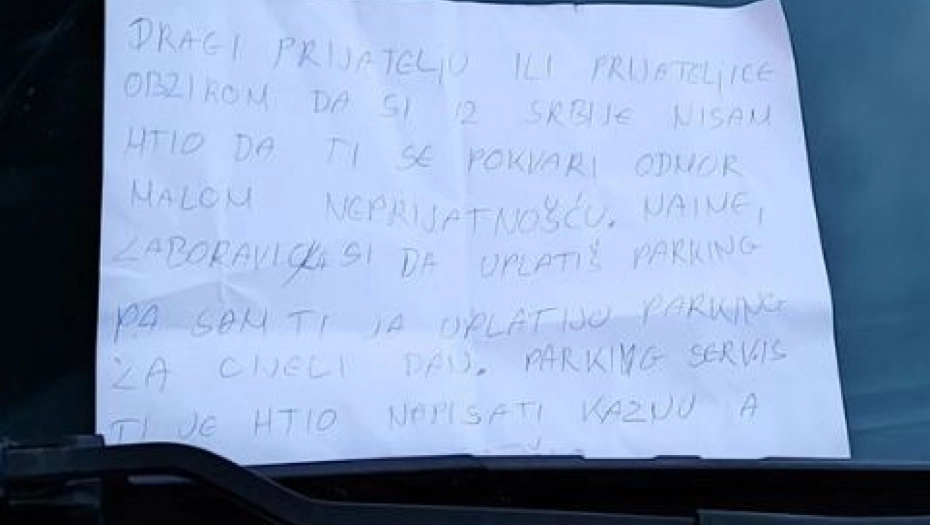 DRAGI PRIJATELJU ILI PRIJATELJICE
OBZIROM DA SI IZ SRBIJE NISAM
HTIO DA TI SE POKVARI ODMOR
MALOM NEPRIJATNOŠĆU. NAIME,
ZABORAVIO/LA SI DA UPLATIŠ PARKING
PA SAM TI JA UPLATIJO PARKING
ZA CIJELI DAN. PARKING SERVIS
TI JE HTIO NAPISATI KAZNU A